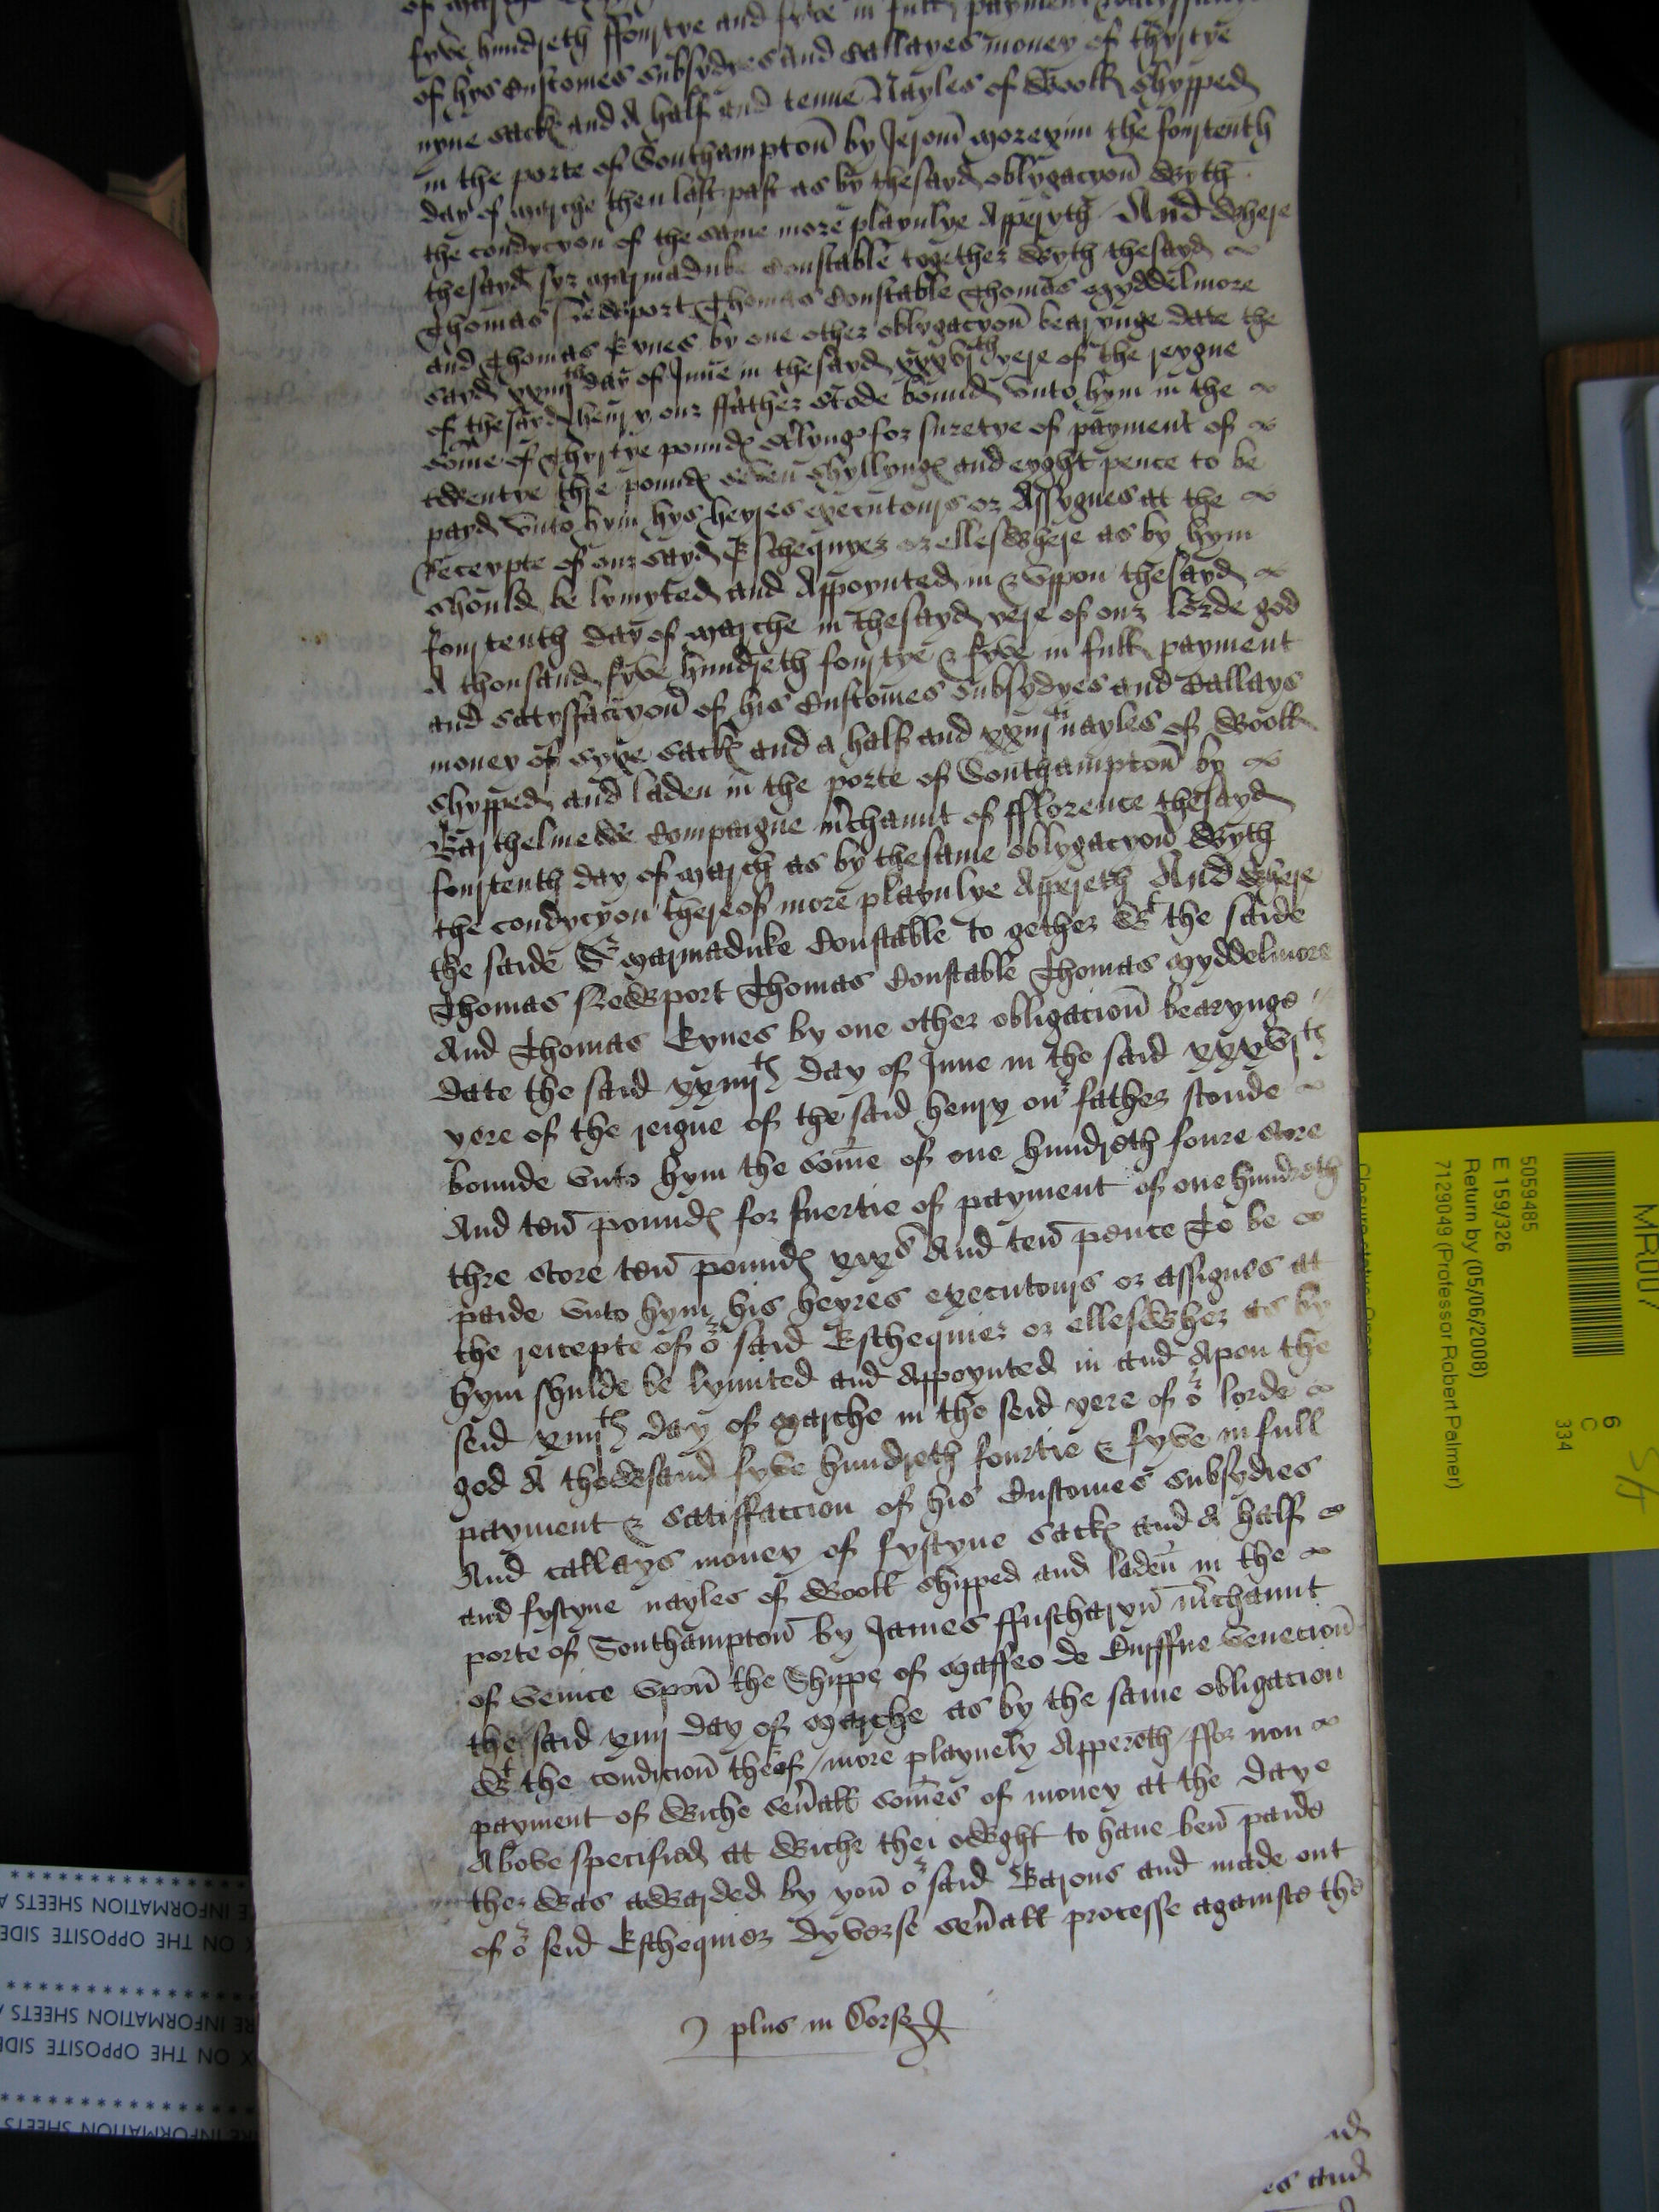 fyve hundreth ffourtye and fyve in full payment
of hys Customes Subsydyes and Callayes money of thyrtye
nyne sack and A half and tenne Nayles of Wooll shypped
in the porte of Southampton by Jerom the fourtenth
day of Marche then last past as by thesayd oblygacyon Wyth
the condycyon of the same more playnlye Apperyth And Where
thesayd syr Marmaduke Constable together Wyth thesayd
Thomas Newport Thomas Constable Thomas Myddelmore
and Thomas Kynes by one other oblygacyon bearynge date the
sayd xxiiijth day of June in thesayd xxxvjth yere of the reygne
of thesayd henry our ffather Stode bound unto hym in the
Some of Thyrtye pound sterlyng for suretye of payment of
twentye thre pound seven shyllyng and eyght pence to be
payd unto hym hys heyres executours or Assygnes at the
Receypte of our sayd Eschequyer or ellesWhere as by hym
should be lymyted and Appoynted in & uppon thesayd
fourtenth day of Marche in thesayd yere of our lorde god
A thousand fyve hundreth fourtye & fyve in full payment
and Satysfaccyon of his Customes Subsydyes and Callays
money of syxe sack and a half and nayles of Wooll
shypped and laden in the porte of Southampton by
Barthelmewe Compaigne m'chaunt of fflorence thesayd
fourtenth day of March as by thesame oblygacyon Wyth
the condycyon thereof more playnlye Appereth And Where
the saide Sr Marmaduke Constable to gether Wt the saide
Thomas NeWport Thomas Constable Thomas Myddelmore
And Thomas Kynes by one other obligacion bearynge
date the said xxiiijth day of June in the said xxxvjth
yere of the reigne of the said henry our father stonde
bounde unto hym the Some of one hundreth foure score
And ten pound for suertie of payment of one hundreth
thre score ten pound xixs And ten pence To be
paide unto hym his heyres executours or assignes at
the receipte of or said Eschequier or ellesWher as by
hym shulde be lymited and Appoynted in and Apon the
seid xiiijth day of Marche in the seid yere of or lorde
god A thoWsand fyve hundreth fourtie & fyve in full
payment & satisfaccion of his Customes Subsydies
And callays money of fyftyne sack and A half
and fyftyne nayles of Wooll shipped and laden in the
porte of Southampton by James ffuscharyn m'chaunt
of Venice upon the Shippe of Maffeo de Venecion
the said xiiij day of Marche as by the same obligacion
Wt the condicion therof / more playnely Appereth / ffor non
payment of Wiche sev'all Somes of money at the daye
Above specified at Wiche thei oWght to have ben paide
ther Was aWarded by you or said Barons and made out
of or seid Eschequier dyverse sev'all processe againste the
plus in Dorso
MR007
6
C
334
5059485
E 159/326
Return by (05/06/2008)
7129049 (Professor Robert Palmer)
INFORMATION SHEETS
ON THE OPPOSITE SIDE
INFORMATION SHEETS
ON THE OPPOSITE SIDE
INFORMATION SHEETS
es and